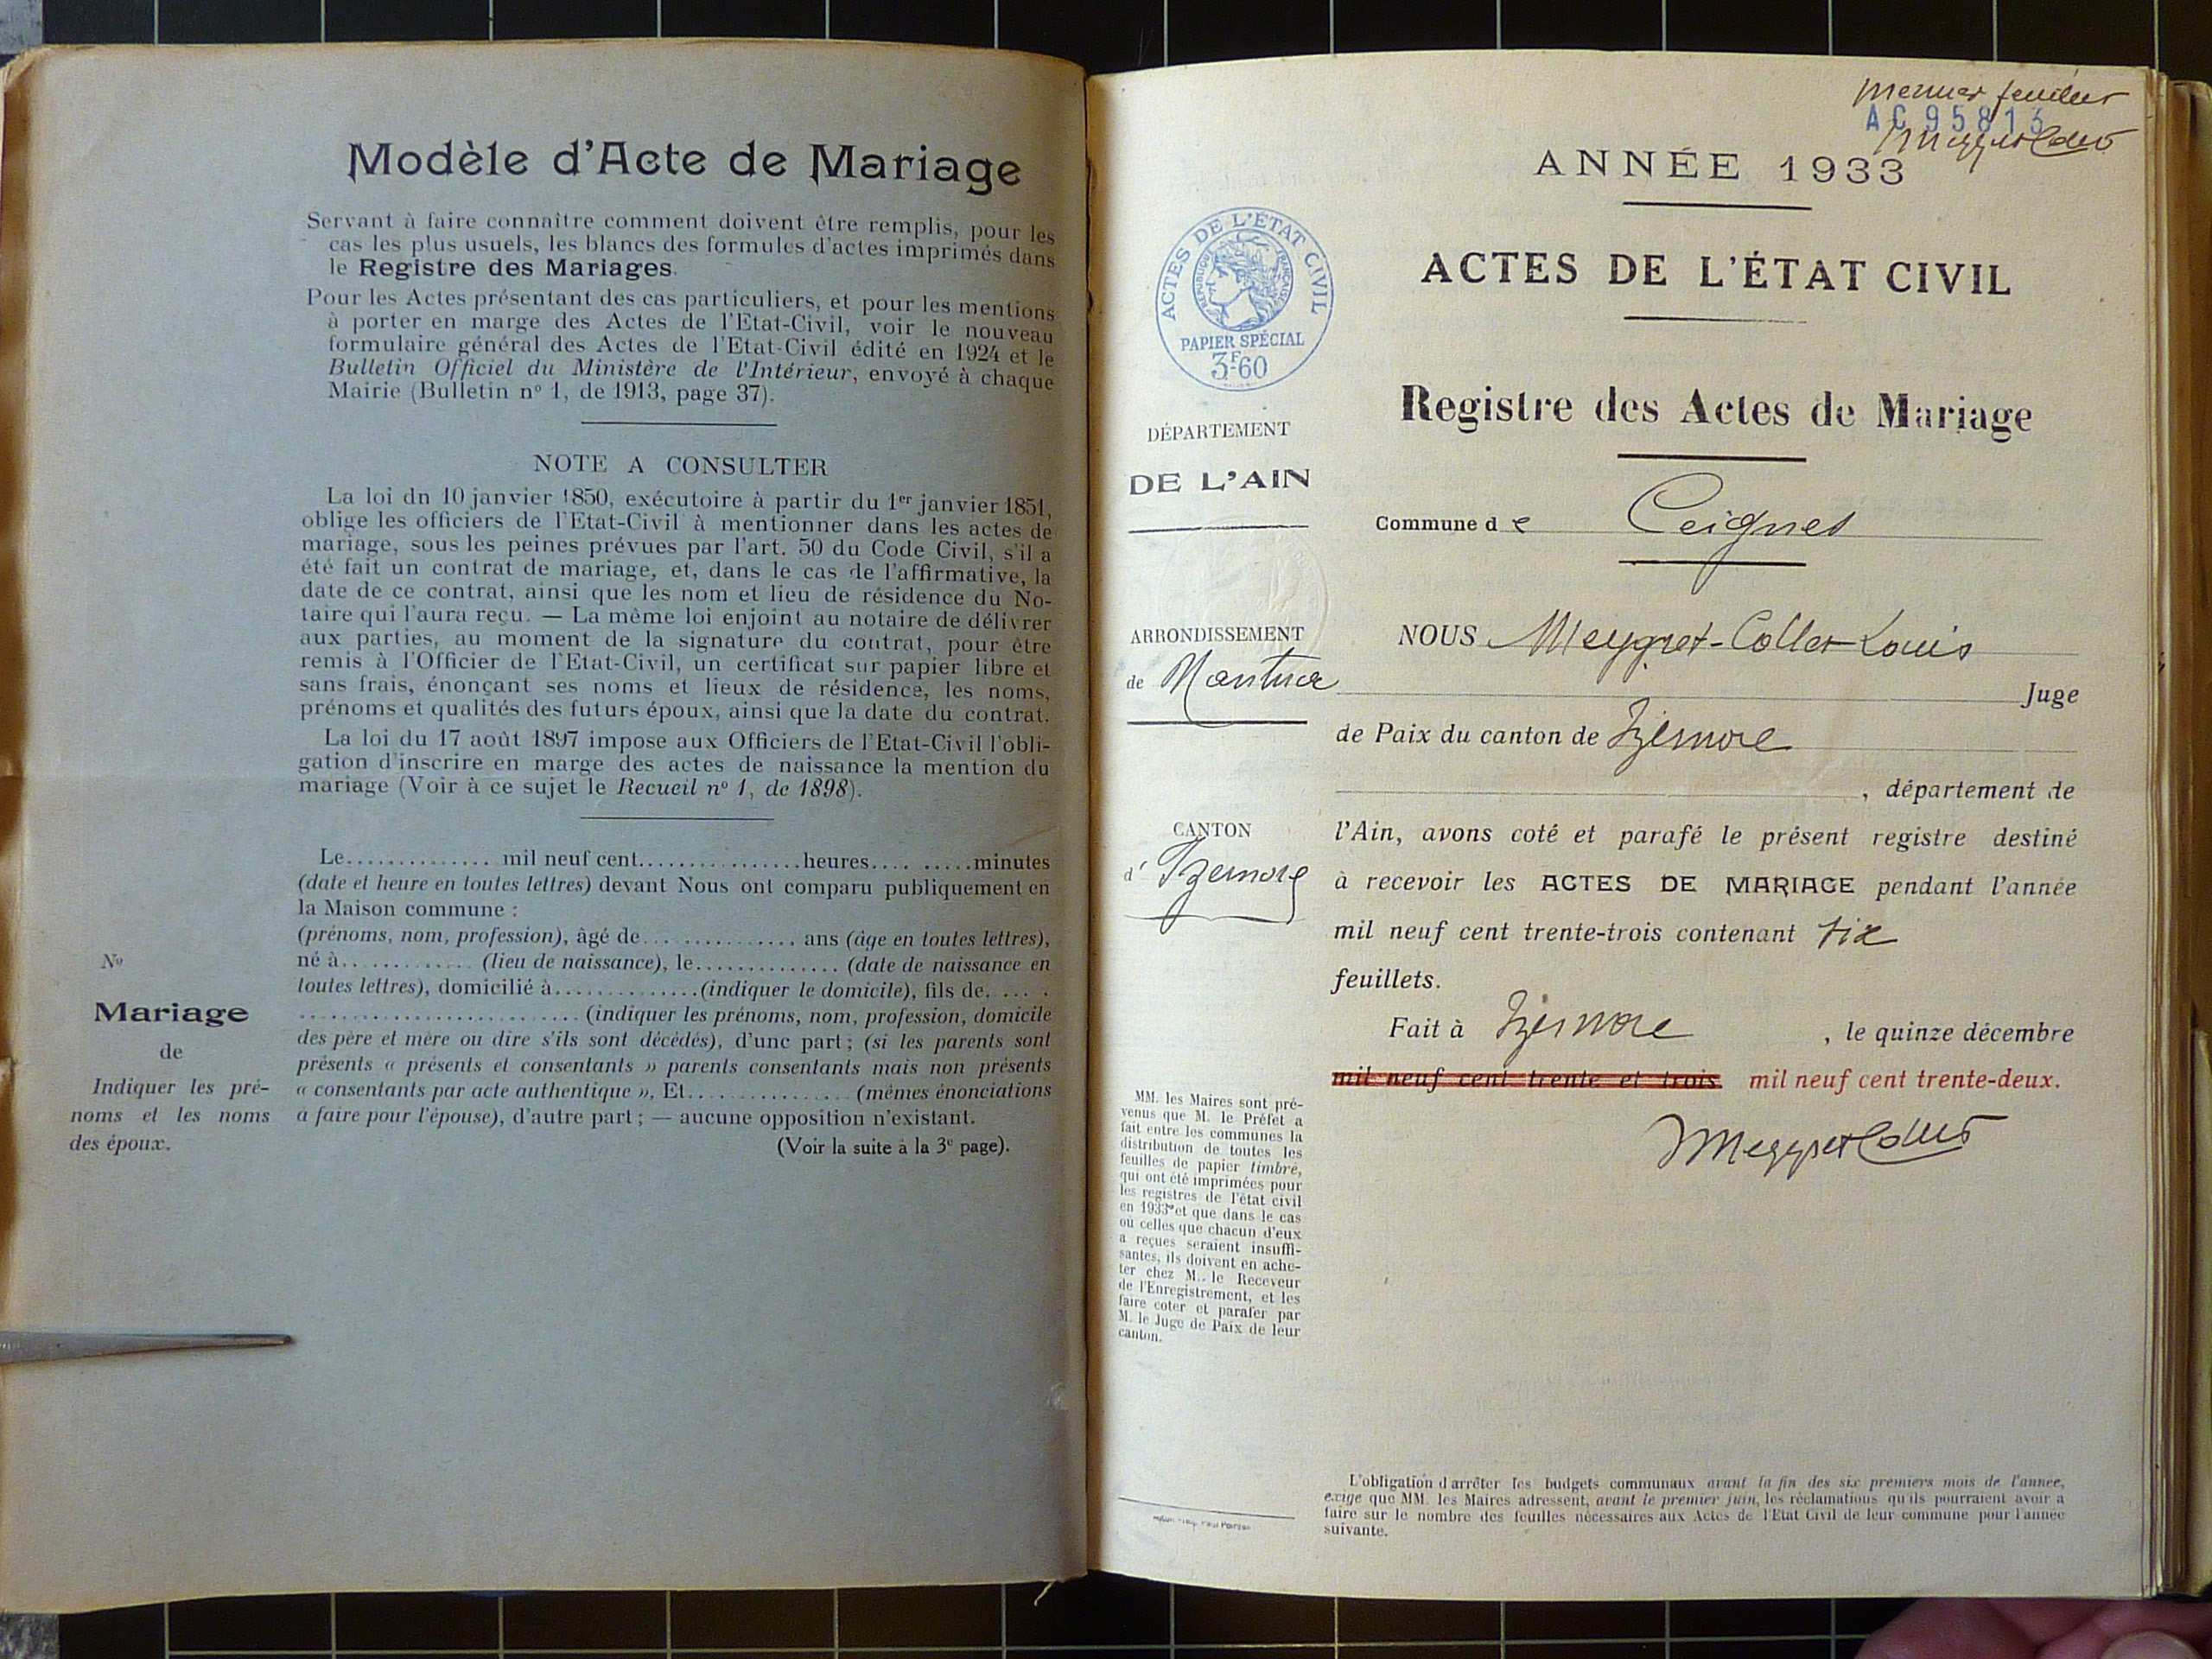 Modèle d'Acte de Mariage
Servant à faire connaître comment doivent être remplis, pour les
cas les plus usuels, les blancs des formules d'actes imprimés dans
le Registre des Mariages.
Pour les Actes présentant des cas particuliers, et pour les mentions
à porter en marge des Actes de l'Etat-Civil, voir le nouveau
formulaire général des Actes de l'Etat-Civil édité en 1924 et le
Bulletin Officiel du Ministère de l'Intérieur, envoyé à chaque
Mairie (Bulletin nº 1, de 1913, page 37).
NOTE A CONSULTER
La loi dn 10 janvier 1850, exécutoire à partir du 1er janvier 1851,
oblige les officiers de l'Etat-Civil à mentionner dans les actes de
mariage, sous les peines prévues par l'art. 50 du Code Civil, s'il a
été fait un contrat de mariage, et, dans le cas de l'affirmative, la
date de ce contrat, ainsi que les nom et lieu de résidence du No-
taire qui l'aura reçu. — La même loi enjoint au notaire de délivrer
aux parties, au moment de la signature du contrat, pour être
remis à l'Officier de l'Etat-Civil, un certificat sur papier libre et
sans frais, énonçant ses noms et lieux de résidence, les noms,
prénoms et qualités des futurs époux, ainsi que la date du contrat.
La loi du 17 août 1897 impose aux Officiers de l'Etat-Civil l'obli-
gation d'inscrire en marge des actes de naissance la mention du
mariage (Voir à ce sujet le Recueil nº 1, de 1898).
Le............... mil neuf cent................heures..........minutes
(date et heure en toutes lettres) devant Nous ont comparu publiquement en
la Maison commune :
(prénoms, nom, profession), âgé de............... ans (âge en toutes lettres),
né à............. (lieu de naissance), le.............. (date de naissance en
toutes lettres), domicilié à..............(indiquer le domicile), fils de.....
............................ (indiquer les prénoms, nom, profession, domicile
des père et mère ou dire s'ils sont décédés), d'une part ; (si les parents sont
présents « présents et consentants » parents consentants mais non présents
« consentants par acte authentique », Et................ (mêmes énonciations
à faire pour l'épouse), d'autre part ; — aucune opposition n'existant.
(Voir la suite à la 3e page).
Nº
Mariage
de
Indiquer les pré-
noms et les noms
des époux.
premier feuillet
AC 95813
Meygret Collet
ANNÉE 1933
ACTES DE L'ÉTAT CIVIL
ACTES DE L'ÉTAT CIVIL
RÉPUBLIQUE FRANÇAISE
PAPIER SPÉCIAL
3F60
Registre des Actes de Mariage
DÉPARTEMENT
DE L'AIN
Commune de Ceignes
ARRONDISSEMENT
de Nantua
CANTON
d' Izernore
NOUS Meygret-Collet Louis
Juge
de Paix du canton de Izernore
, département de
l'Ain, avons coté et parafé le présent registre destiné
à recevoir les ACTES DE MARIAGE pendant l'année
mil neuf cent trente-trois contenant six
feuillets.
Fait à Izernore , le quinze décembre
mil neuf cent trente et trois. mil neuf cent trente-deux.
Meygret Collet
MM. les Maires sont pré-
venus que M. le Préfet a
fait entre les communes la
distribution de toutes les
feuilles de papier timbré,
qui ont été imprimées pour
les registres de l'état civil
en 1933 et que dans le cas
où celles que chacun d'eux
a reçues seraient insuffi-
santes, ils doivent en ache-
ter chez M. le Receveur
de l'Enregistrement, et les
faire coter et parafer par
M. le Juge de Paix de leur
canton.
L'obligation d'arrêter les budgets communaux avant la fin des six premiers mois de l'année,
exige que MM. les Maires adressent, avant le premier juin, les réclamations qu'ils pourraient avoir à
faire sur le nombre des feuilles nécessaires aux Actes de l'Etat Civil de leur commune pour l'année
suivante.